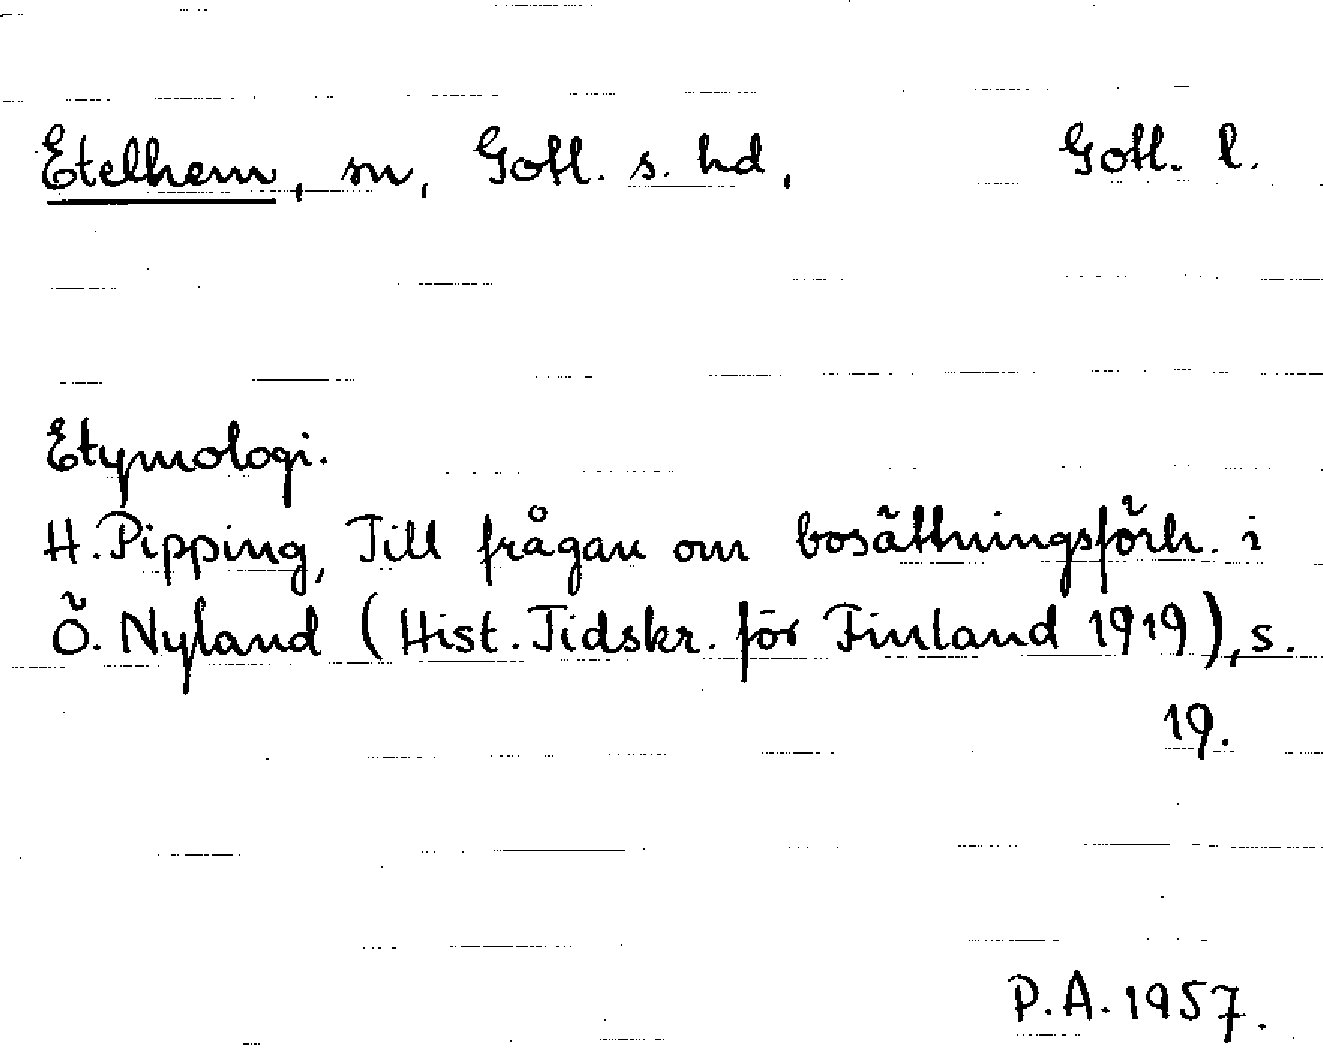 Etelhem, sn, Gotl. s. hd, Gotl. l.
Etymologi.
H. Pipping, Till frågan om bosättningsförh. i
Ö. Nyland (Hist. Tidskr. för Finland 1919), s.
19.
P.A. 1957.